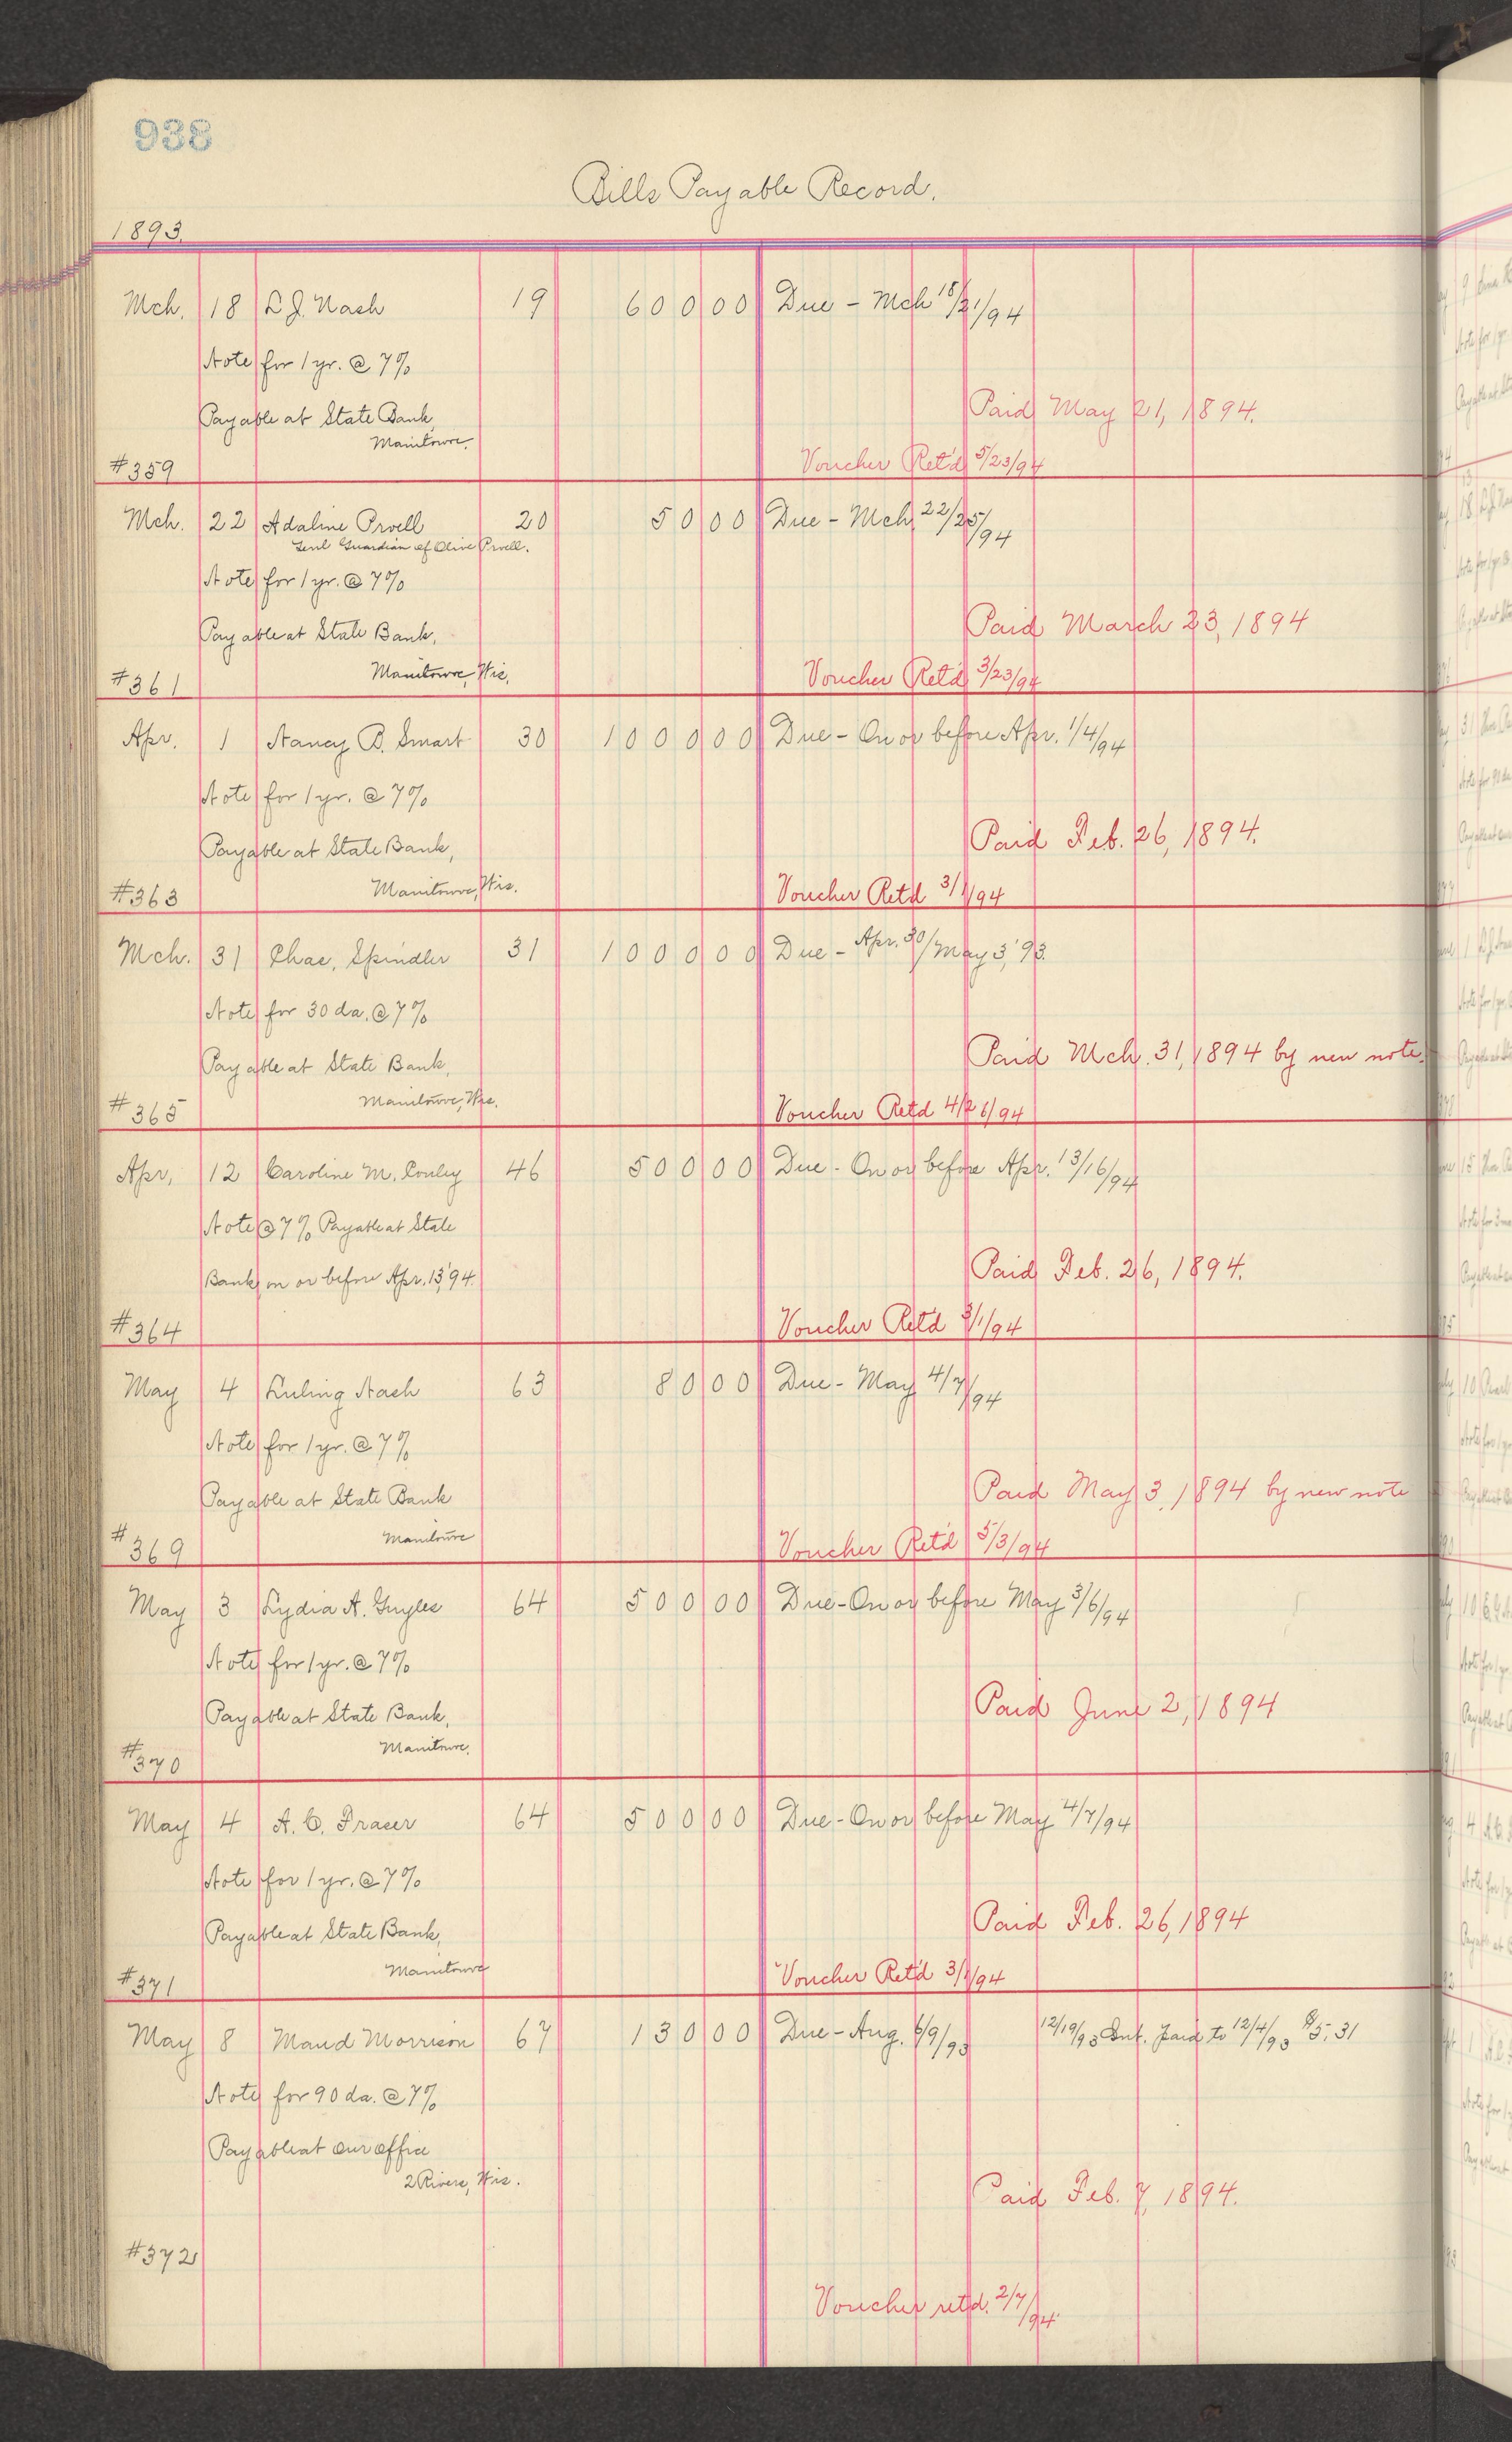 938
Bills Payable Record.
1893.
Mch. 18 L. J. Nash 19 600 00 Due - Mch 18/21/94
Note for 1 yr. @ 7%
Payable at State Bank, Paid May 21, 1894.
Manitowoc.
#359 Voucher Ret'd 5/23/94
Mch. 22 Adaline Proell 20 50 00 Due - Mch. 22/25/94
Genl Guardian of Olive Proell.
Note for 1 yr. @ 7%
Payable at State Bank, Paid March 23, 1894
Manitowoc, Wis.
#361 Voucher Ret'd 3/23/94
Apr. 1 Nancy B. Smart 30 1000 00 Due - On or before Apr. 1/4/94
Note for 1 yr. @ 7%
Payable at State Bank, Paid Feb. 26, 1894.
Manitowoc, Wis.
#363 Voucher Retd 3/1/94
Mch. 31 Chas. Spindler 31 1000 00 Due - Apr. 30/May 3, '93.
Note for 30 da. @ 7%
Payable at State Bank, Paid Mch. 31, 1894 by new note.
Manitowoc, Wis.
#365 Voucher Retd 4/26/94
Apr. 12 Caroline M. Conley 46 500 00 Due - On or before Apr. 13/16/94
Note @ 7% Payable at State
Bank on or before Apr. 13, '94. Paid Feb. 26, 1894.
#364 Voucher Ret'd 3/1/94
May 4 Luling Nash 63 80 00 Due - May 4/7/94
Note for 1 yr. @ 7%
Payable at State Bank Paid May 3, 1894 by new note
Manitowoc
#369 Voucher Ret'd 5/3/94
May 3 Lydia A. Guyles 64 500 00 Due - On or before May 3/6/94
Note for 1 yr. @ 7%
Payable at State Bank, Paid June 2, 1894
Manitowoc.
#370
May 4 A. C. Fraser 64 500 00 Due - On or before May 4/7/94
Note for 1 yr. @ 7%
Payable at State Bank, Paid Feb. 26, 1894
Manitowoc
#371 Voucher Ret'd 3/1/94
May 8 Maud Morrison 67 130 00 Due - Aug. 6/9/93 12/19/93 Int. paid to 12/4/93 $5.31
Note for 90 da. @ 7%
Payable at our office
2 Rivers, Wis. Paid Feb. 7, 1894.
#372
Voucher retd. 2/7/94